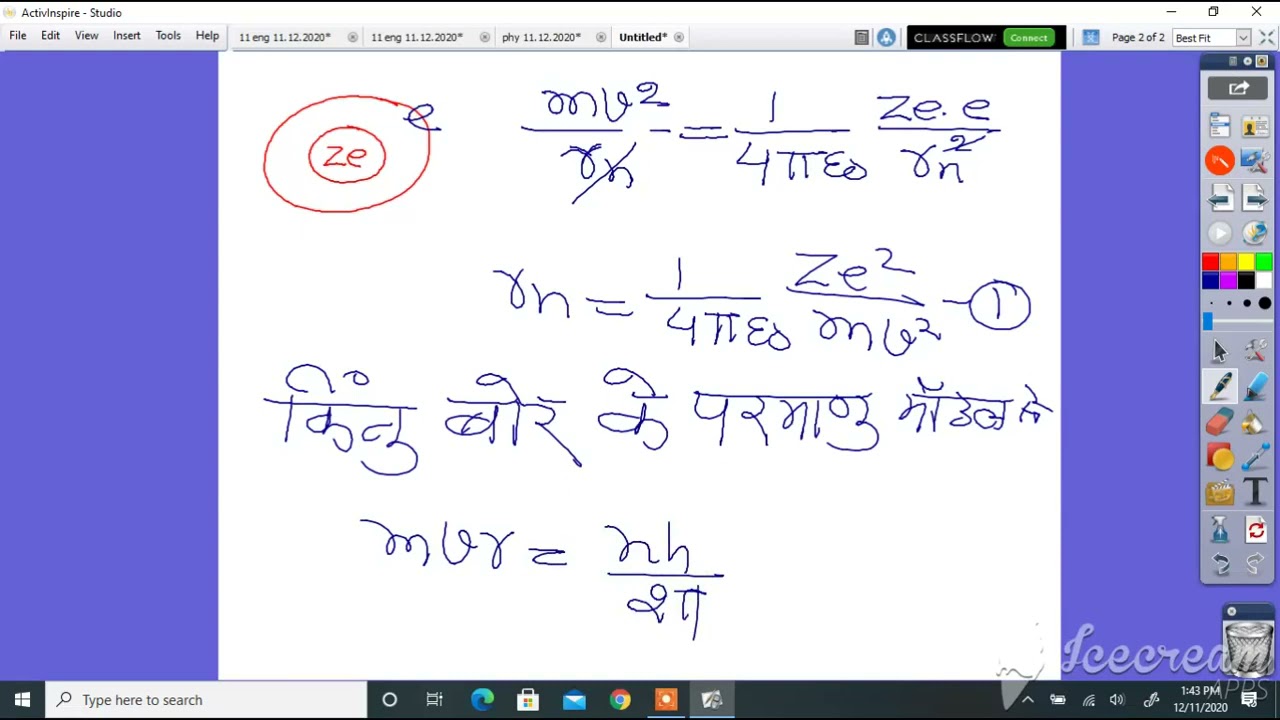 ActivInspire - Studio
File Edit View Insert Tools Help
11 eng 11.12.2020* 11 eng 11.12.2020* phy 11.12.2020* Untitled*
CLASSFLOW Connect
Page 2 of 2 Best Fit
ze e
mv²/rn = 1/4πε₀ ze.e/rn²
rn = 1/4πε₀ Ze²/mv² - ①
किंतु बोर के परमाणु मॉडल से
mvr = nh/2π
T
Icecream
APPS
Type here to search
1:43 PM
12/11/2020